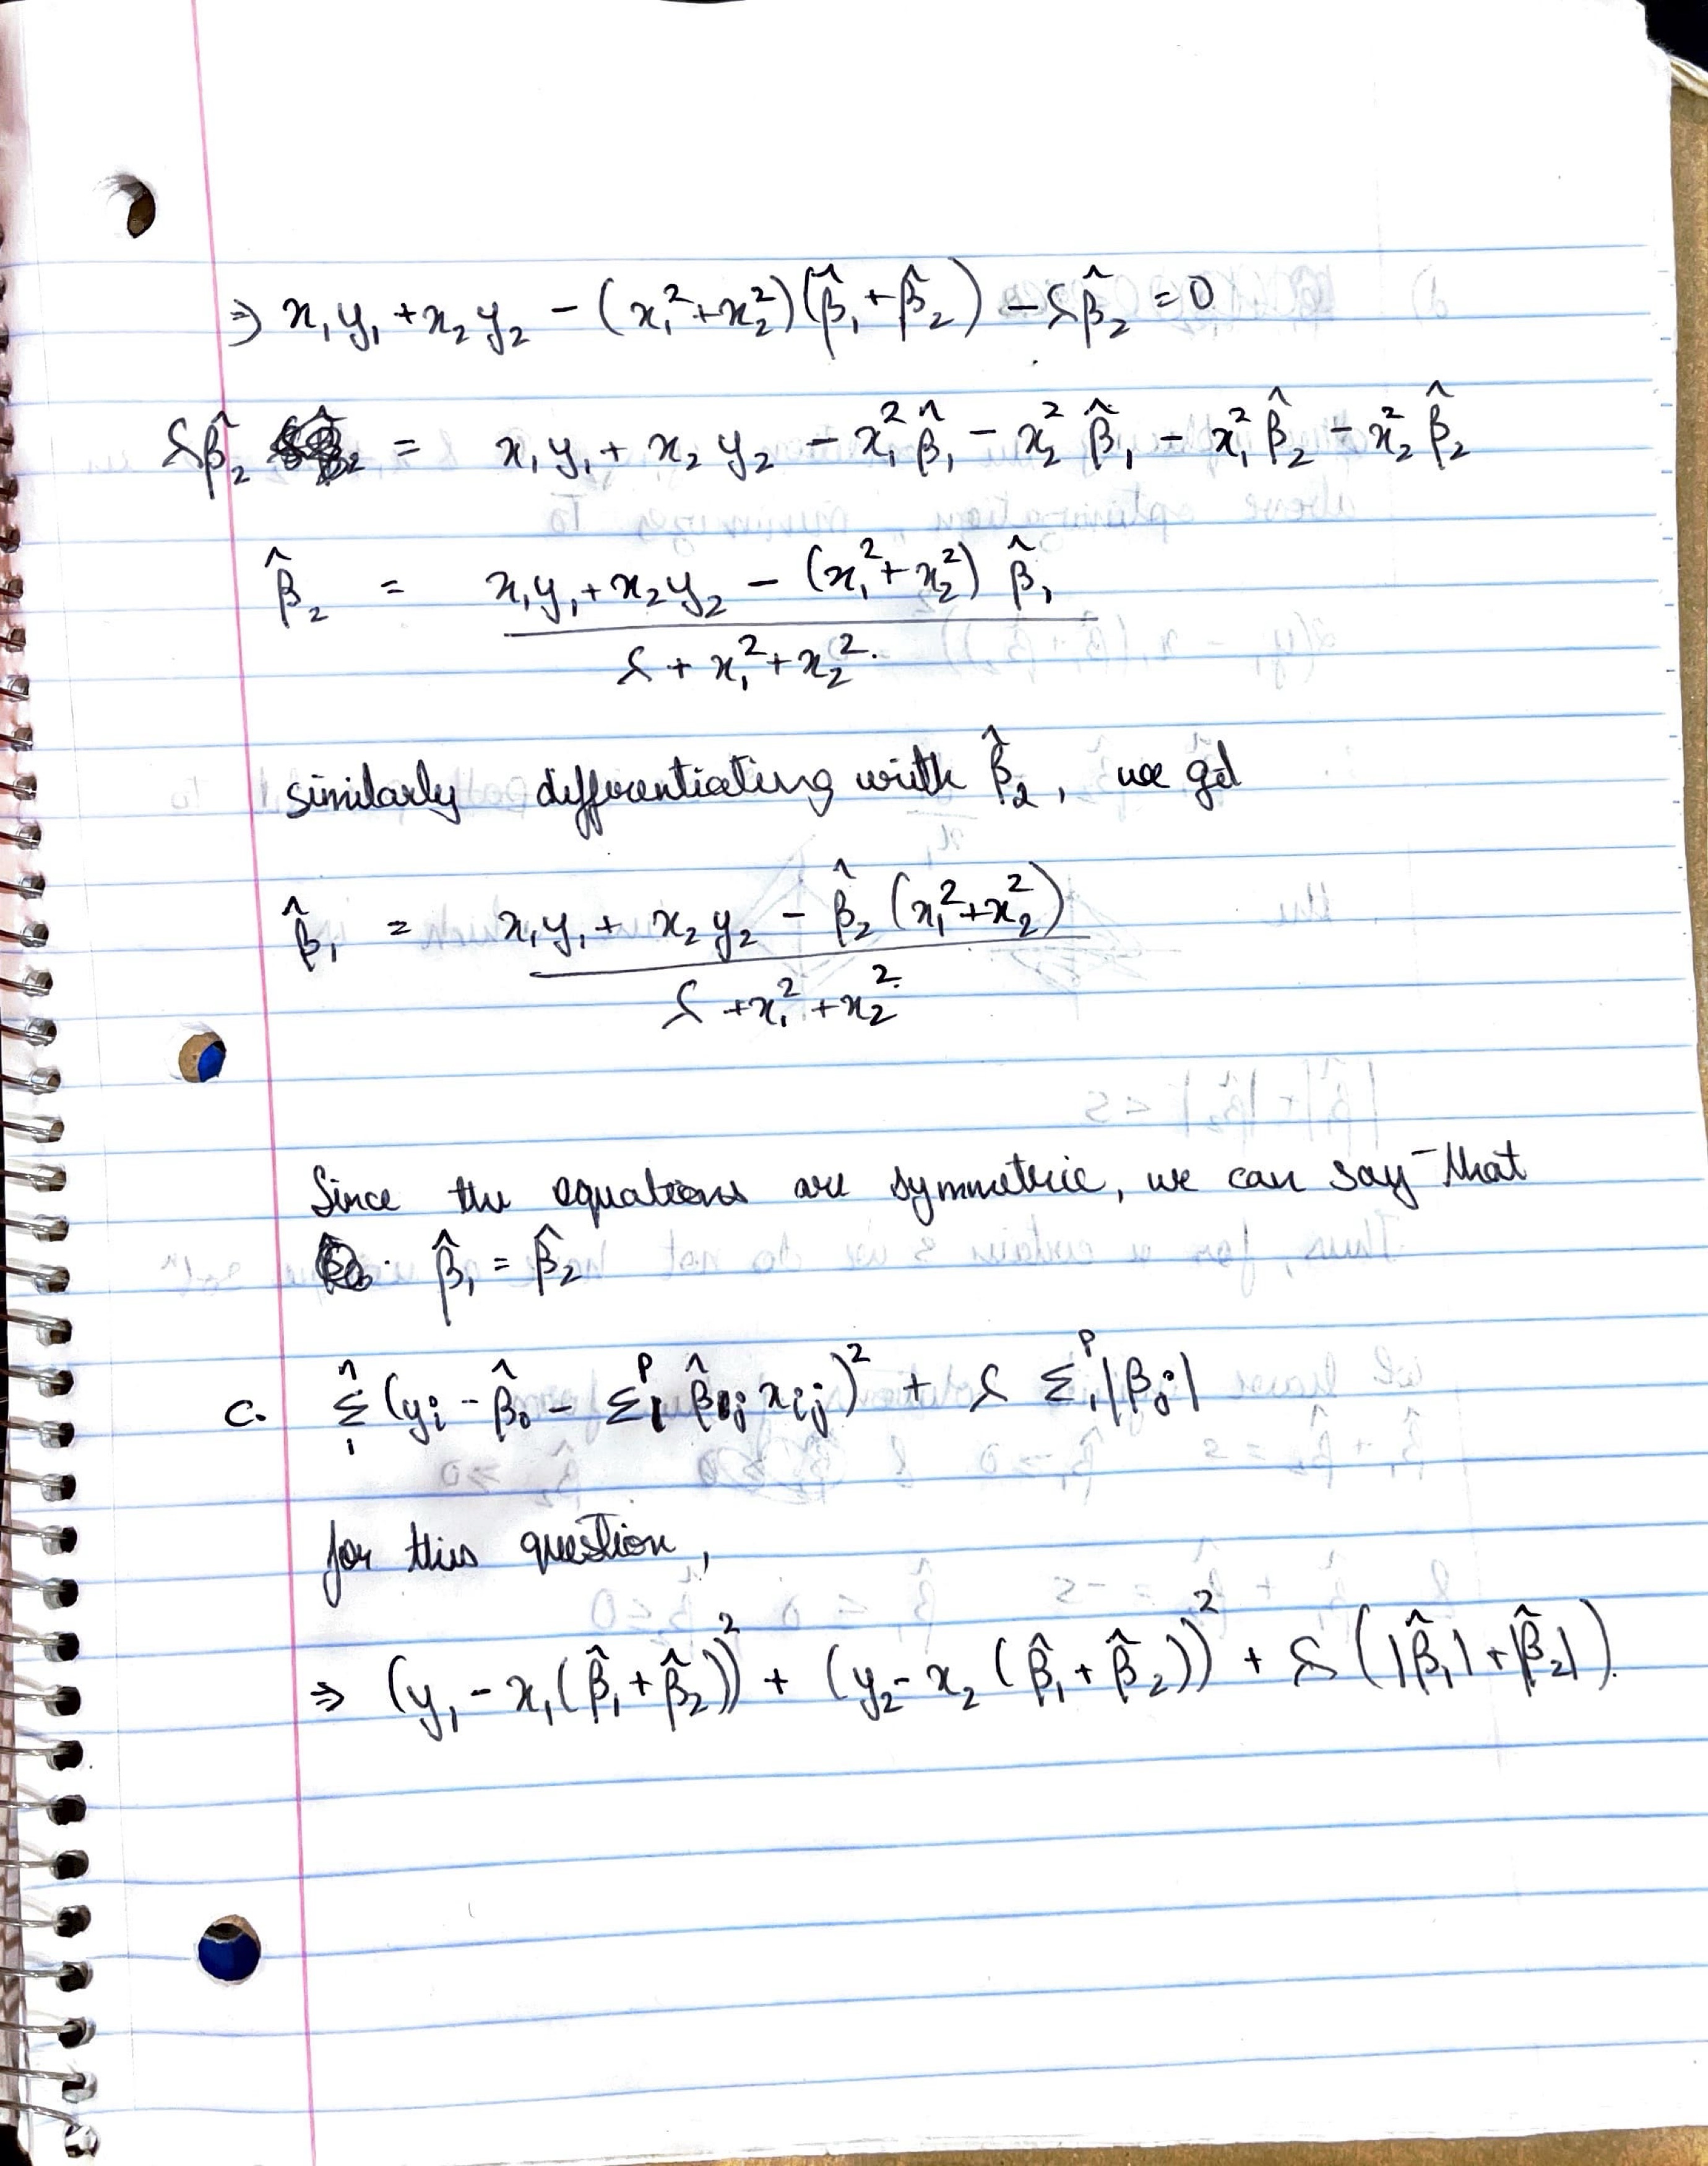 ⇒ x₁y₁ + x₂y₂ - (x₁² + x₂²)(β̂₁ + β̂₂) - λβ̂₂ = 0
λβ̂₂ = x₁y₁ + x₂y₂ - x₁²β̂₁ - x₂²β̂₁ - x₁²β̂₂ - x₂²β̂₂
β̂₂ = x₁y₁ + x₂y₂ - (x₁² + x₂²) β̂₁
λ + x₁² + x₂².
similarly differentiating with β̂₂, we get
β̂₁ = x₁y₁ + x₂y₂ - β̂₂ (x₁² + x₂²)
λ + x₁² + x₂².
Since the equations are symmetric, we can say that
β̂₁ = β̂₂
c. Σ₁ⁿ (yᵢ - β̂₀ - Σ₁ᵖ β̂ⱼ xᵢⱼ)² + λ Σ₁ᵖ |βⱼ|
for this question,
⇒ (y₁ - x₁(β̂₁ + β̂₂))² + (y₂ - x₂ (β̂₁ + β̂₂))² + λ (|β̂₁| + |β̂₂|).